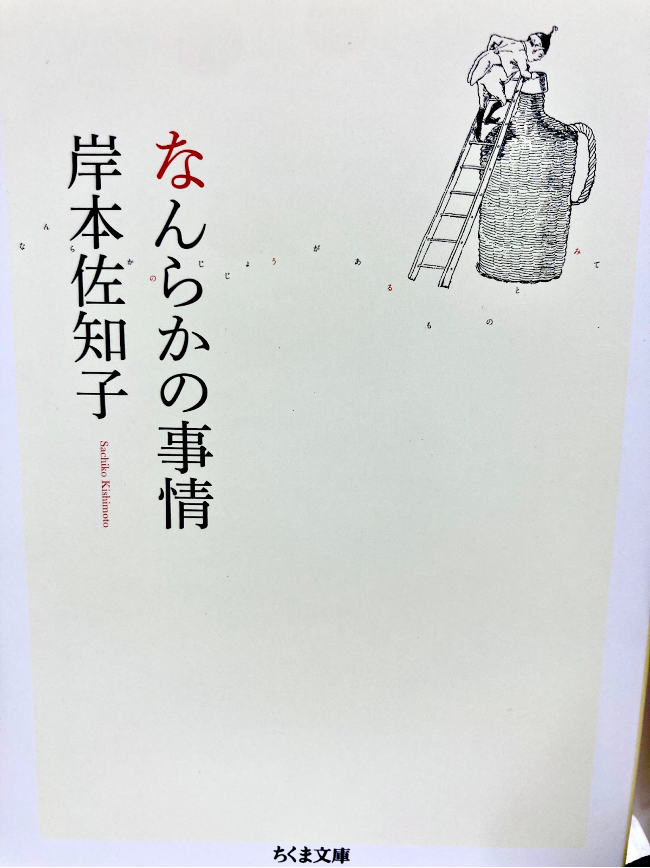 なんらかの事情
岸本佐知子
Sachiko Kishimoto
なんらかのじじょうがあるものとみて
ちくま文庫